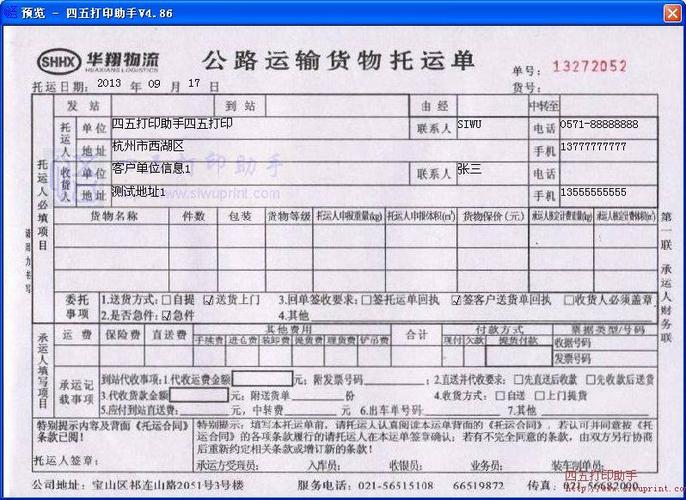 预览 - 四五打印助手V4.86
SHHX 华翔物流 公路运输货物托运单
HUAXIANG LOGISTICS
单号: 13272052
托运日期: 2013 年 09 月 17 日 货号:
发站 到站 由经 中转至
托运人 单位 四五打印助手四五打印 联系人 SIWU 电话 0571-88888888
地址 杭州市西湖区 手机 13777777777
收货人 单位 客户单位信息1 联系人 张三 电话
地址 测试地址1 手机 13555555555
四五打印助手
www.siwuprint.com
托运人必填项目
请用力书写
货物名称 件数 包装 货物等级 托运人申报重量(kg) 托运人申报体积(m³) 货物保价(元) 承运人核定计费重量(kg) 承运人核定计费体积(m³)
第一联 承运人财务联
委托事项 1.送货方式:□自提 ☑送货上门 3.回单签收要求:□签托运单回执 ☑签客户送货单回执 □收货人必须盖章
2.是否急件:☑急件 4.其他
承运人填写项目
运费 保险费 直送费 其他费用 合计 付款方式 票据类型/号码
手续费 进仓费 装卸费 提货费 理货费 铲吊费 现付 欠款 提货付款 收据号码
发票号码
承运记载事项 到站代收事项:1.代收运费金额 元; 附发票号码 ; 2.直送并代收要求: □先直送后收款 □先收款后送货
3.代收货款金额 元; 附送货单 份 4.收货方式:□自送 □上门提货
5.应付到站直送费: 元,中转费 元 6.出车单号码: 7.其他
特别提示内容及背面《托运合同》条款已阅!
托运人签章:
特别提示: 填写本托运单前,请托运人认真阅读本托运单背面的《托运合同》,若认可并同意按《托运合同》的各项条款履行的请托运人在本运单签章确认;若有不完全同意的条款,由双方另行协商后重新约定相关条款或增订新的条款!
承运方受理员: 入库员: 收银员: 装车制单员:
公司地址: 宝山区祁连山路2051号3号楼 服务电话:021-56515108 66519872 传真:021-56682000
四五打印助手
www.siwuprint.com